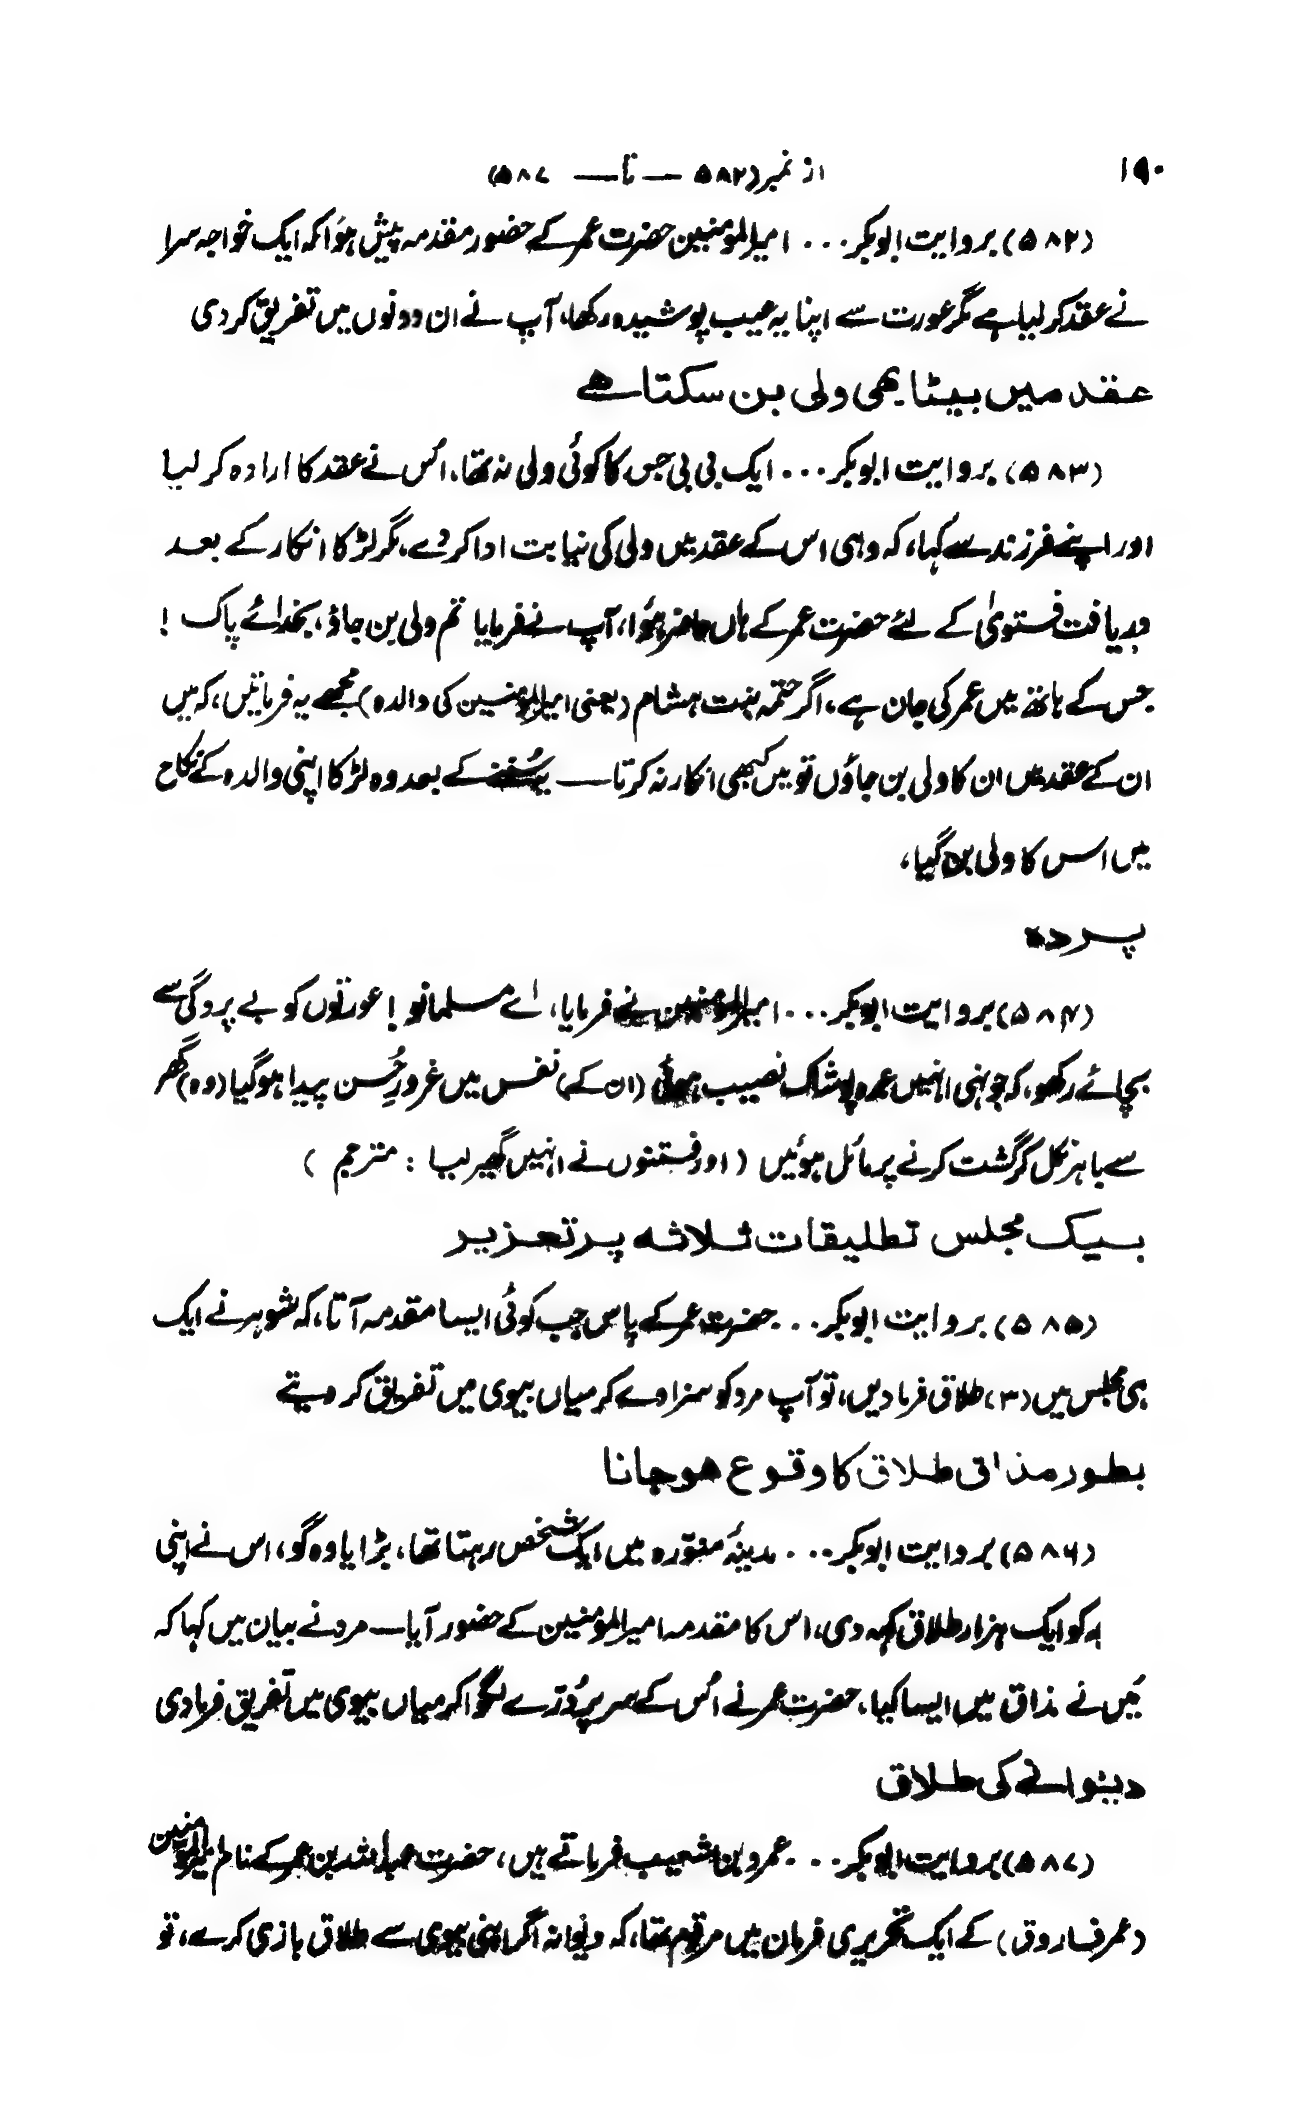 ۱۹۰
از نمبر (۵۸۲ — تا — ۵۸۷)
(۵۸۲) بروایت ابوبکر... امیرالمؤمنین حضرت عمر کے حضور مقدمہ پیش ہؤا کہ ایک خواجہ سرا
نے عقد کر لیا ہے مگر عورت سے اپنا یہ عیب پوشیدہ رکھا، آپ نے ان دونوں میں تفریق کر دی
عقد میں بیٹا بھی ولی بن سکتا ہے
(۵۸۳) بروایت ابوبکر... ایک بی بی جس کا کوئی ولی نہ تھا، اُس نے عقد کا ارادہ کر لیا
اور اپنے فرزند سے کہا، کہ وہی اس کے عقد میں ولی کی نیابت ادا کر دے، مگر لڑکا انکار کے بعد
دریافت فتویٰ کے لئے حضرت عمر کے ہاں حاضر ہؤا، آپ نے فرمایا تم ولی بن جاؤ، بخدائے پاک !
جس کے ہاتھ میں عمر کی جان ہے، اگر حنتمہ بنت ہشام (یعنی امیرالمؤمنین کی والدہ) مجھے یہ فرماتیں، کہ میں
ان کے عقد میں ان کا ولی بن جاؤں تو میں کبھی انکار نہ کرتا — یہ سُننے کے بعد وہ لڑکا اپنی والدہ کے نکاح
میں اس کا ولی بن گیا،
پردہ
(۵۸۴) بروایت ابوبکر... امیرالمؤمنین نے فرمایا، اے مسلمانو ! عورتوں کو بے پردگی سے
بچائے رکھو، کہ جونہی انہیں عمدہ پوشاک نصیب ہوئی (ان کے) نفس میں غرورِ حُسن پیدا ہو گیا (وہ) گھر
سے باہر نکل کر گشت کرنے پر مائل ہوئیں (اور فتنوں نے انہیں گھیر لیا : مترجم )
بیک مجلس تطلیقات ثلاثہ پر تعزیر
(۵۸۵) بروایت ابوبکر... حضرت عمر کے پاس جب کوئی ایسا مقدمہ آتا، کہ شوہر نے ایک
ہی مجلس میں (۳) طلاق فرما دیں، تو آپ مرد کو سزا دے کر میاں بیوی میں تفریق کر دیتے
بطور مذاق طلاق کا وقوع ہو جانا
(۵۸۶) بروایت ابوبکر... مدینۂ منوّرہ میں ایک شخص رہتا تھا، بڑا یاوہ گو، اس نے اپنی
ہ کو ایک ہزار طلاق کہہ دی، اس کا مقدمہ امیرالمؤمنین کے حضور آیا — مرد نے بیان میں کہا کہ
مَیں نے مذاق میں ایسا کیا، حضرت عمر نے اُس کے سر پر دُرّے لگوا کر میاں بیوی میں تفریق فرما دی
دیوانے کی طلاق
(۵۸۷) بروایت ابوبکر... عمرو بن شعیب فرماتے ہیں، حضرت عبداللہ بن عمر کے نام امیرالمؤمنین
(عمر فاروق) کے ایک تحریری فرمان میں مرقوم تھا، کہ دیوانہ اگر اپنی بیوی سے طلاق بازی کرے، تو